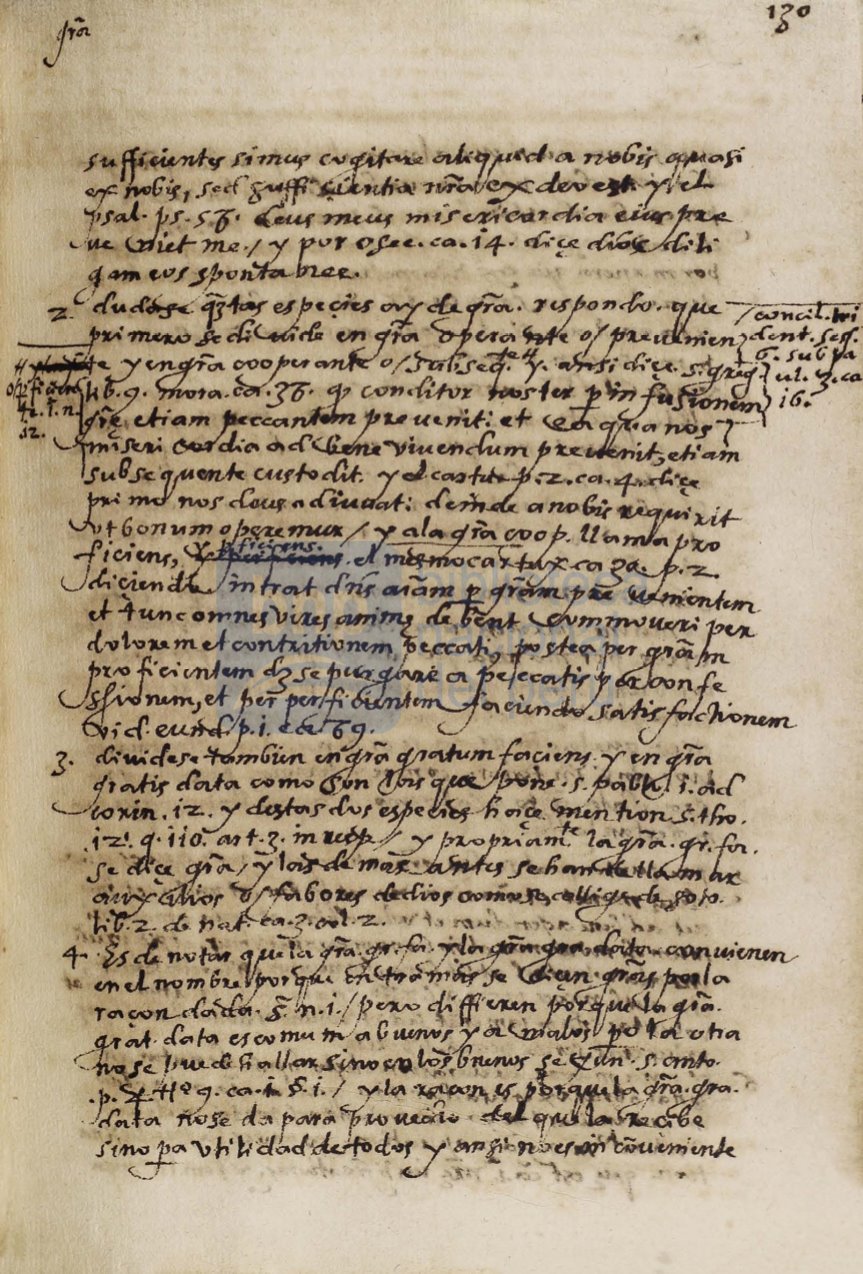 gr̃a
130
sufficientes simus cogitare aliquid a nobis quasi
ex nobis, sed sufficientia nr̃a ex deo est y el
psal. ps. 58. deus meus misericordia eius pre
ve niet me / y por osee. ca. 14. diçe dios dili
gam eos spontanee.
2. dudase quãtas espeçies ay de gr̃a. respondo. que
primero se diuide en gr̃a operante o / preuenien
te y en gr̃a cooperante o / subseq.te y. ansi diçe s. greg.
lib. 9. mora. ca. 36. q conditor noster p infusionem
grẽ etiam peccantem preuenit: et ea qua nos
miseri cordia ad bene viuendum preuenit, etiam
subsequente custodit. y el cartuxe p. 2. ca. 4. diçe
primo nos deus adiuuat: deinde a nobis requirit
vt bonum operemur / y a la gr̃a coop. llama pro
ficiens, perficiens. el mesmo cartux ca 30. p. 2.
diçiendo intrat dñs aĩam p gr̃am pre uenientem
et tunc omnes vires animę debent commoueri per
dolorem et contritionem peccati, postea per gr̃am
proficientem dz se purgare a peccatis per confe
ssionem, et per perficientem faciendo satisfactionem
vid. eund. p. 1. ca. 69.
3. diuidese tambien en gr̃a gratum faciens y en gr̃a
gratis data como son las que pone. s. pablo 1. ad
corin. 12. y destas dos espeçies haçe mention s. tho.
12. q. 110. art. 3. in resp / y propriam.te la gr̃a. gr. fa.
se diçe gr̃a / y las demas antes se han de llamar
auxilios o / fabores de dios como se collige de soto.
lib. 2. de nat. ca. 3. col. 2.
4. Es de notar que la gr̃a. gr. fa. y la gr̃a gra. data conuienen
en el nombre porque entramas se diçen gr̃as por la
raçon dada. §. n. 1. / pero differen porque la gr̃a.
grat. data es comum a buenos y a malos pero la otra
no se puede hallar sino en los buenos segun. s. anto.
.p. 4. tto 9. ca. 1. §. 1. / y la raçon es porque la gr̃a. gra.
data no se da para prouecho del que la recibe
sino pa vtilidad de todos y ansi no es inconueniente
/ concil. tri
dent. sess.
6. sub pa
ul. 3. ca
16.
52.